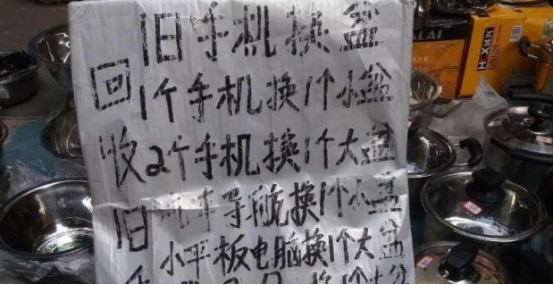 旧手机换盆
1个手机换1个小盆
2个手机换1个大盆
导航换1个小盆
小平板电脑换1个大盆
换1个大盆
回收旧手
LAI